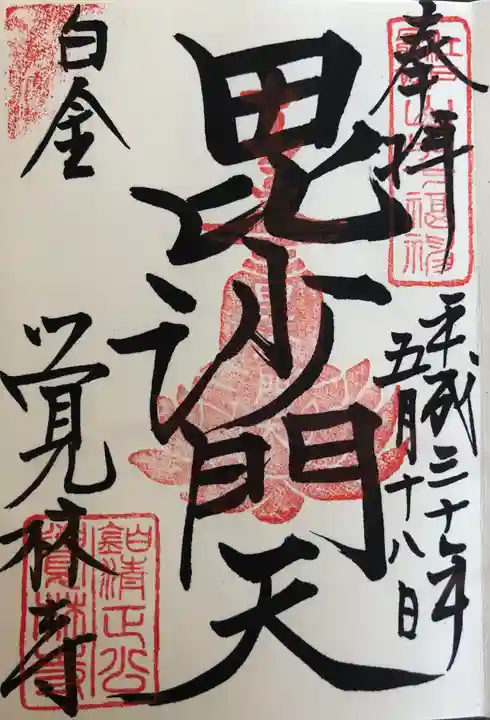 奉拝
平成三十年
五月十八日
毘沙門天
白金
覚林寺
清正公
覚林寺